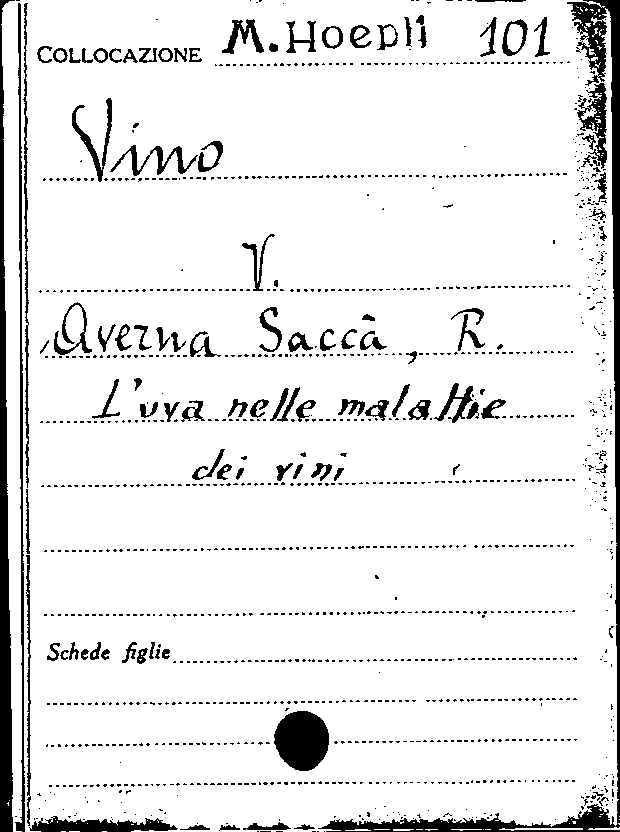 COLLOCAZIONE M. Hoepli 101
Vino
V.
Averna Saccà, R.
L'uva nelle malattie
dei vini
Schede figlie